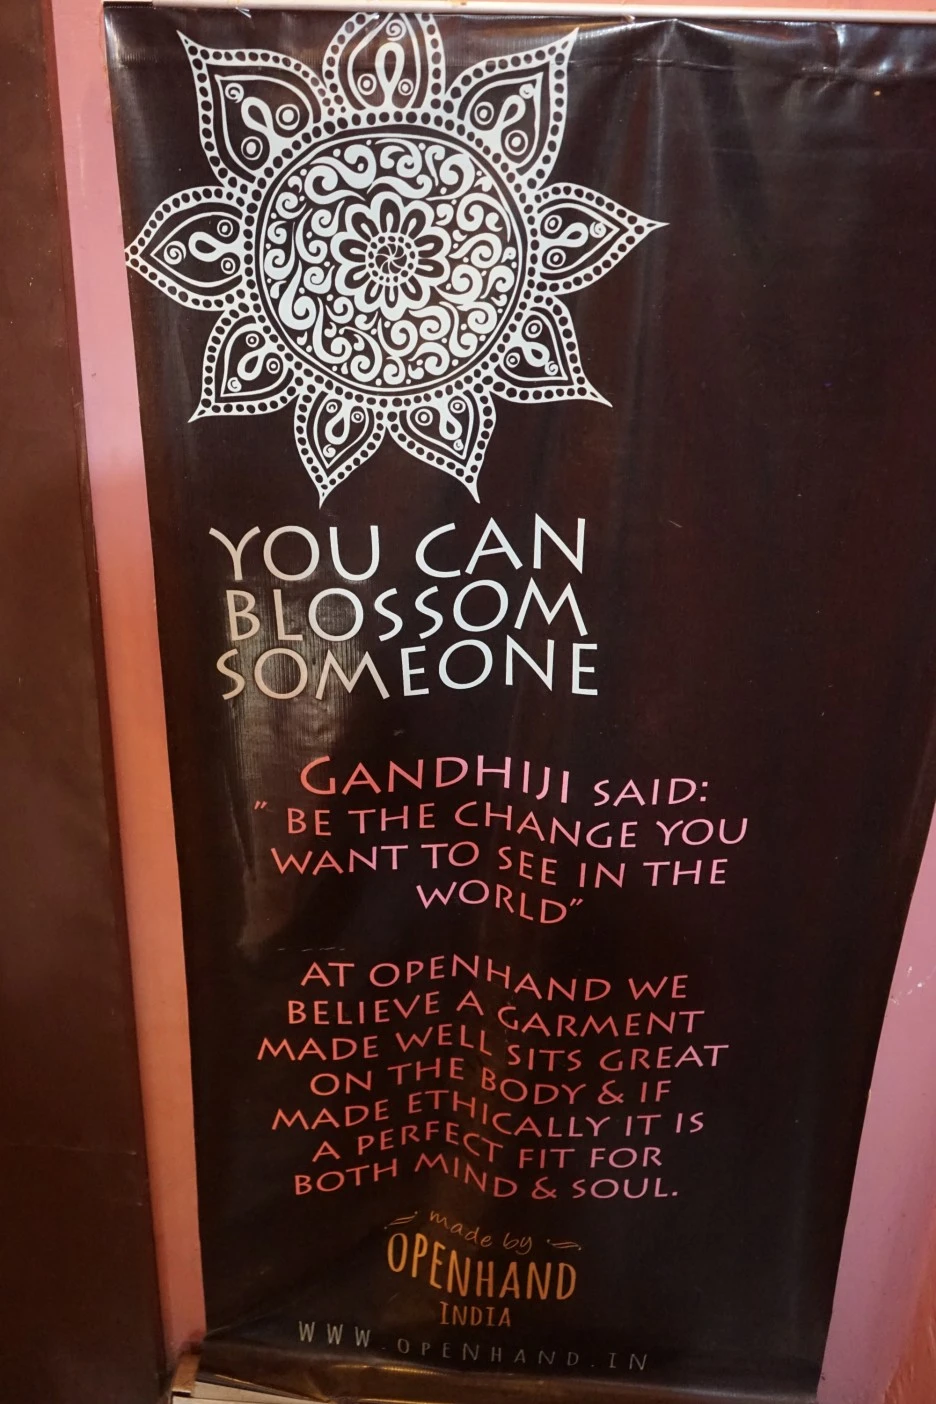 YOU CAN
BLOSSOM
SOMEONE
GANDHIJI SAID:
" BE THE CHANGE YOU
WANT TO SEE IN THE
WORLD"
AT OPENHAND WE
BELIEVE A GARMENT
MADE WELL SITS GREAT
ON THE BODY & IF
MADE ETHICALLY IT IS
A PERFECT FIT FOR
BOTH MIND & SOUL.
made by
OPENHAND
INDIA
WWW.OPENHAND.IN